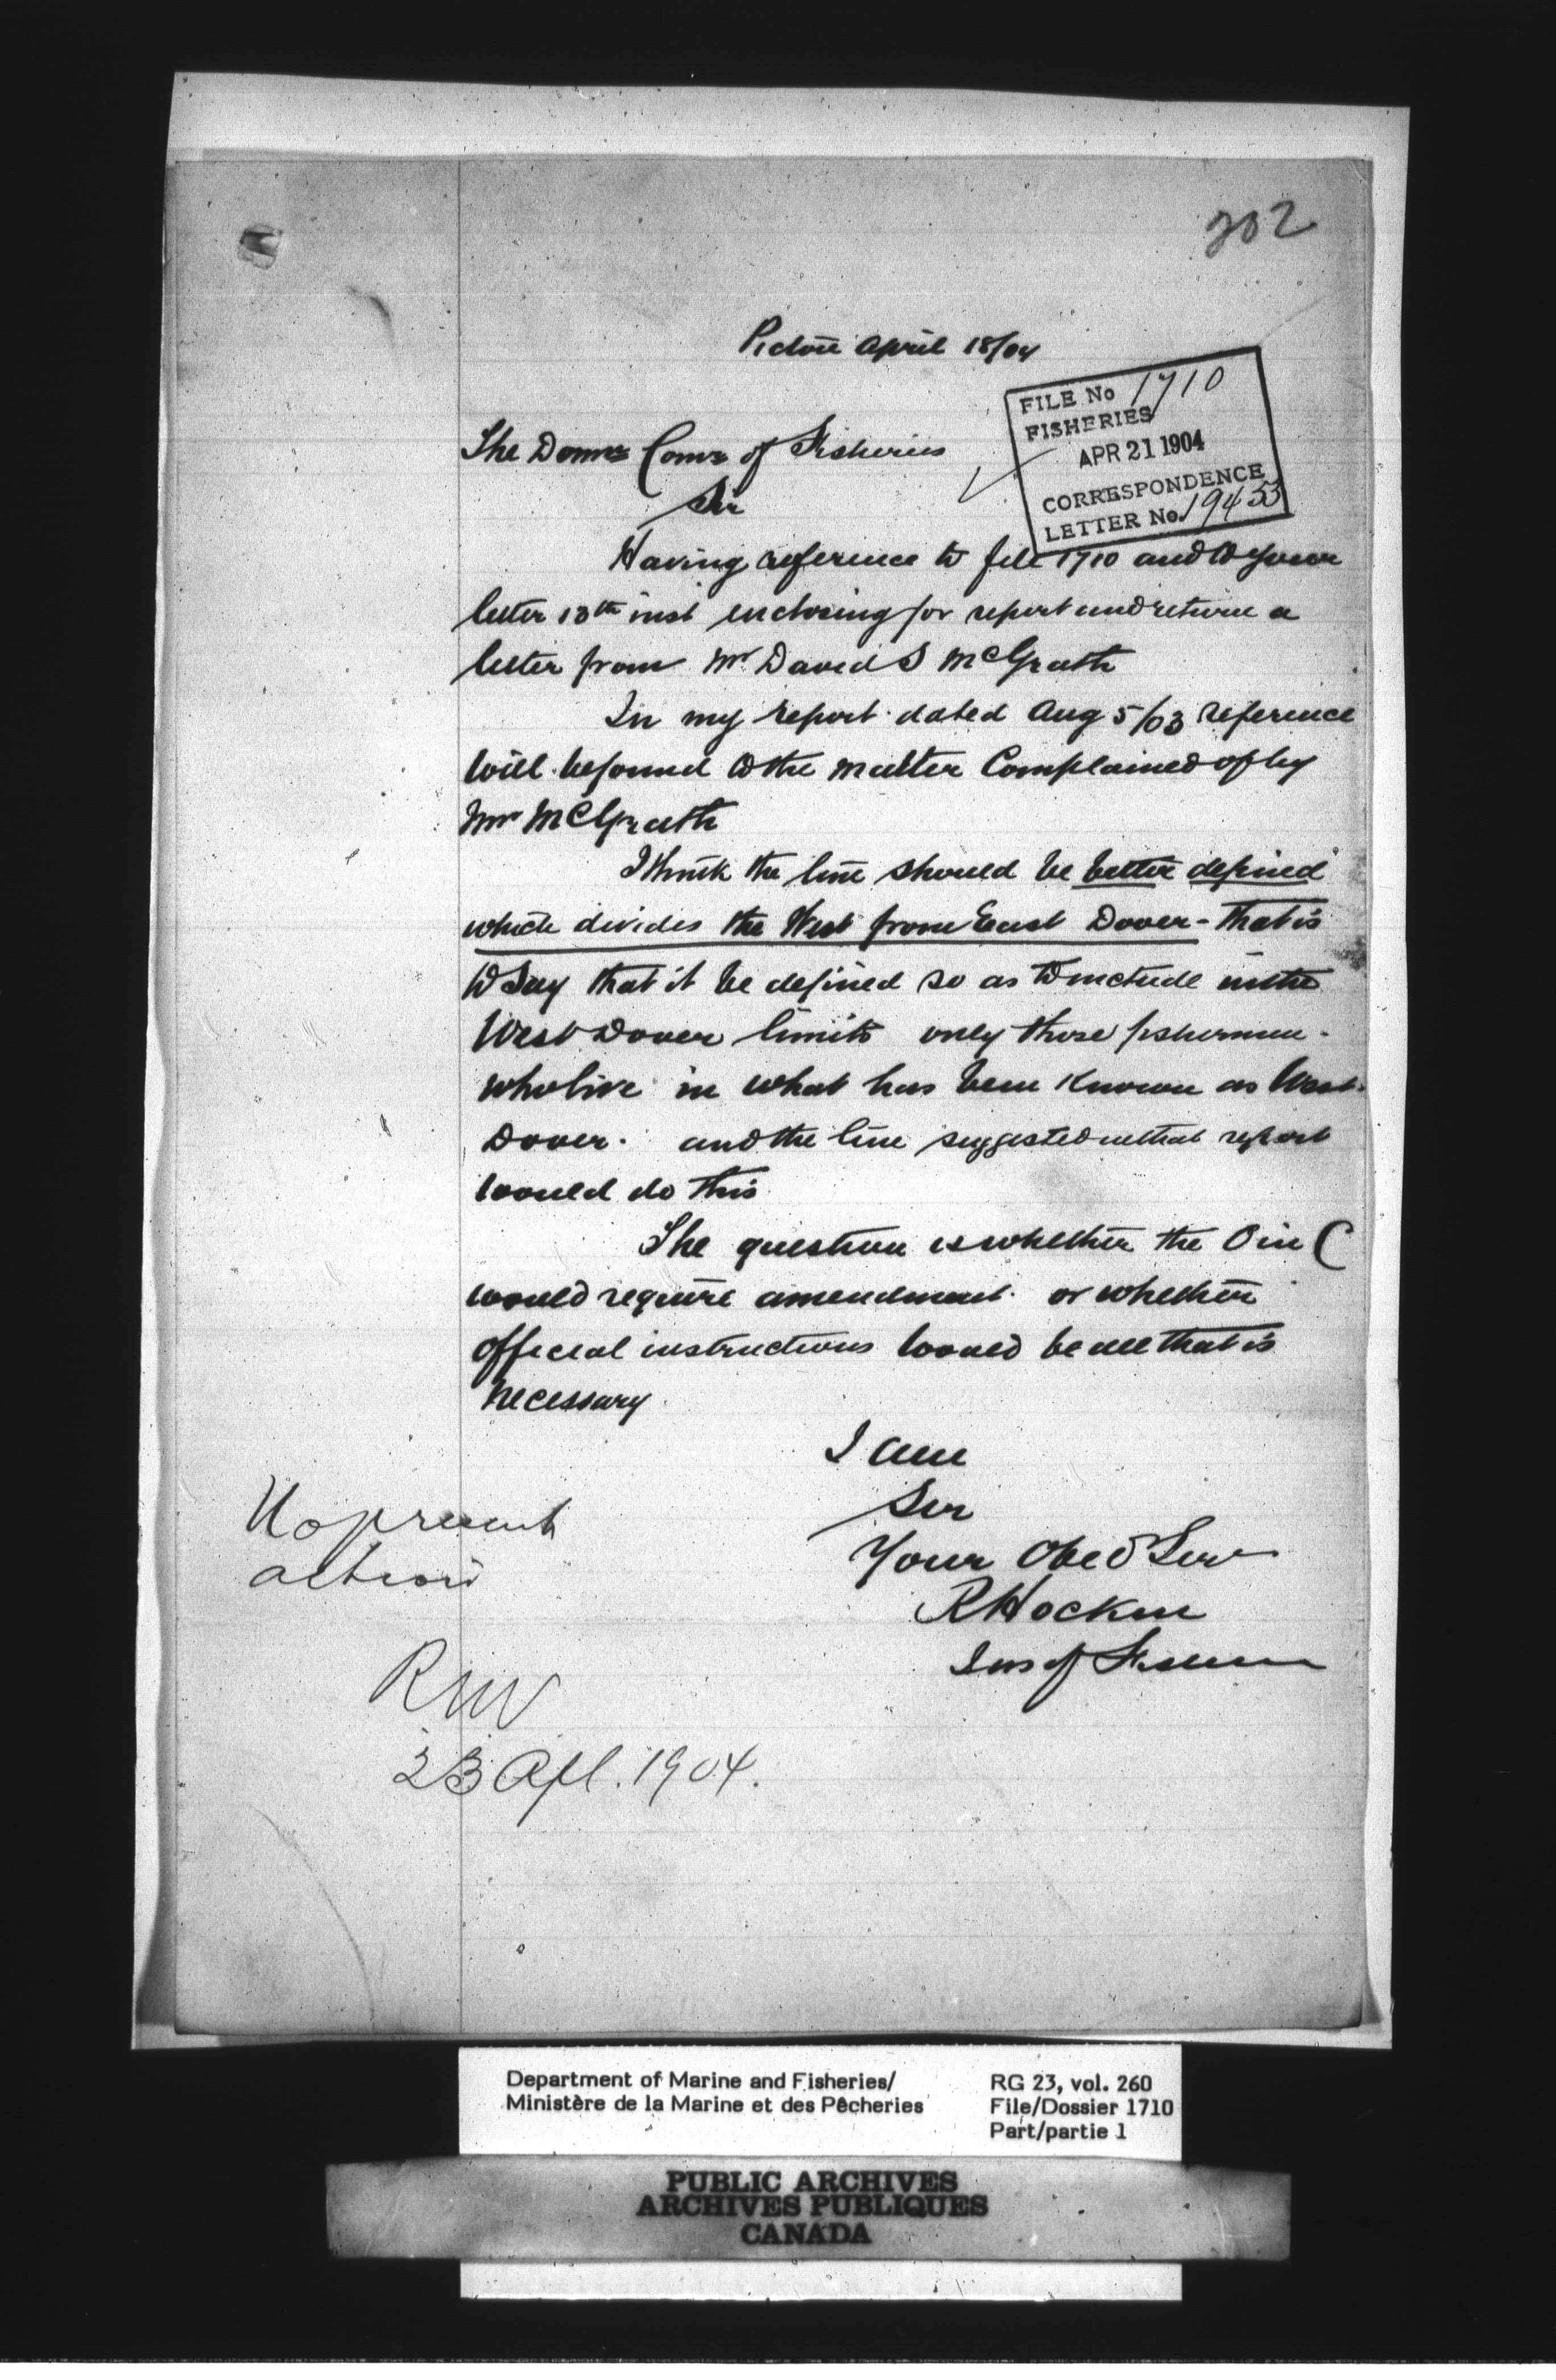 202
Pictou April 18/04
FILE No 1710
FISHERIES
APR 21 1904
CORRESPONDENCE
LETTER No. 19453
The Domn Comr of Fisheries
Sir
Having reference to file 1710 and to your
letter 13th inst enclosing for report and return a
letter from Mr David S McGrath
In my report dated Aug 5/03 reference
will be found to the matter Complained of by
Mr McGrath
I think the line should be better defined
which divides the West from East Dover - That is
to Say that it be defined so as to include in the
West Dover limits only those fishermen
who live in what has been Known as West
Dover. and the line suggested in that report
would do this
The question is whether the O in C
would require amendment. or whether
official instructions would be all that is
necessary
I am
Sir
Your Obed Serv
R Hockin
Ins of Fisheries
No present
action
RNV
23 Apl. 1904.
Department of Marine and Fisheries/
Ministère de la Marine et des Pêcheries
RG 23, vol. 260
File/Dossier 1710
Part/partie 1
PUBLIC ARCHIVES
ARCHIVES PUBLIQUES
CANADA